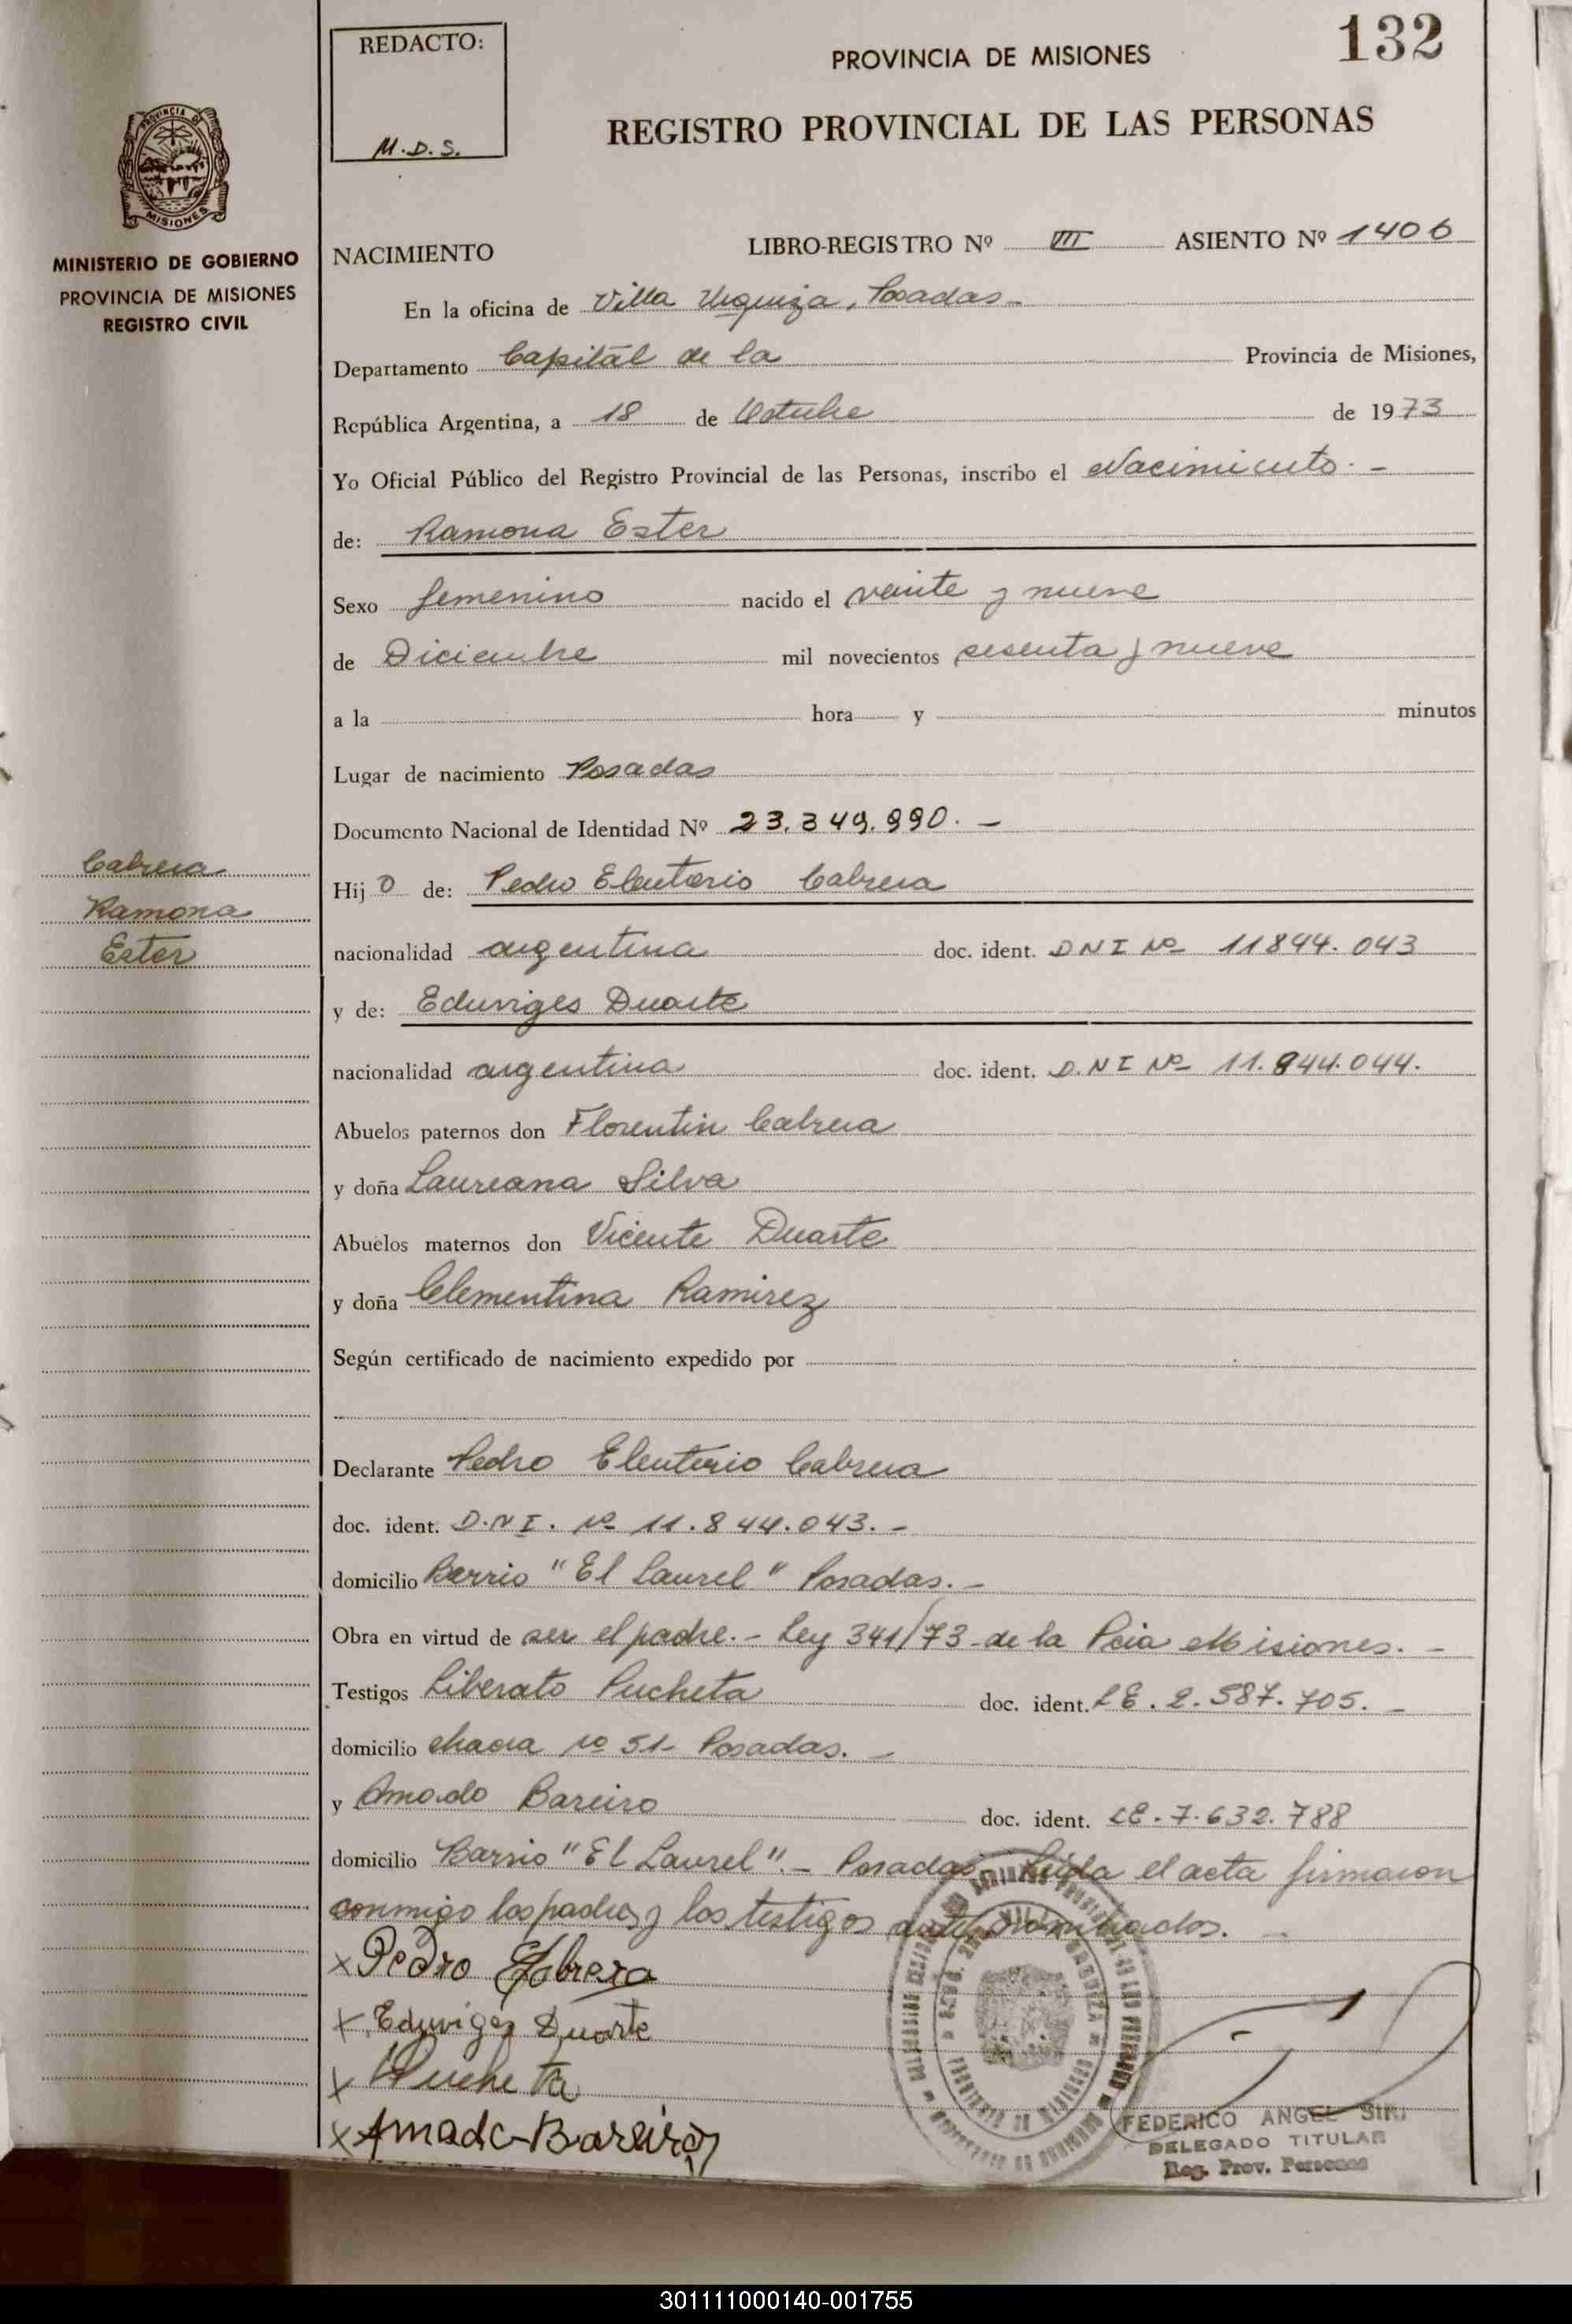 132
REDACTO:
M.D.S.
PROVINCIA DE MISIONES
REGISTRO PROVINCIAL DE LAS PERSONAS
PROVINCIA DE
MISIONES
MINISTERIO DE GOBIERNO
PROVINCIA DE MISIONES
REGISTRO CIVIL
NACIMIENTO LIBRO-REGISTRO Nº III ASIENTO Nº 1406
En la oficina de Villa Urquiza, Posadas
Departamento Capital de la Provincia de Misiones,
República Argentina, a 18 de Octubre de 1973
Yo Oficial Público del Registro Provincial de las Personas, inscribo el Nacimiento. -
de: Ramona Ester
Sexo femenino nacido el veinte y nueve
de Diciembre mil novecientos sesenta y nueve
a la hora y minutos
Lugar de nacimiento Posadas
Documento Nacional de Identidad Nº 23.349.990. -
Cabrera
Ramona
Ester
Hij o de: Pedro Eleuterio Cabrera
nacionalidad argentina doc. ident. DNI Nº 11844.043
y de: Eduviges Duarte
nacionalidad argentina doc. ident. D.NI Nº 11.844.044.
Abuelos paternos don Florentin Cabrera
y doña Laureana Silva
Abuelos maternos don Vicente Duarte
y doña Clementina Ramirez
Según certificado de nacimiento expedido por
Declarante Pedro Eleuterio Cabrera
doc. ident. D.N.I. Nº 11.844.043. -
domicilio Barrio "El Laurel" Posadas. -
Obra en virtud de ser el padre. - Ley 341/73 - de la Pcia Misiones. -
Testigos Liberato Pucheta doc. ident. LE. 2.587.705. -
domicilio chacra Nº 51- Posadas. -
y Amado Bareiro doc. ident. LE-7.632.788
domicilio Barrio "El Laurel". - Posadas. Leida el acta firmaron
conmigo los padres y los testigos antes nombrados.
x Pedro Cabrera
x Eduviges Duarte
x Pucheta
x Amado Bareiro
FEDERICO ANGEL SIRI
DELEGADO TITULAR
Reg. Prov. Personas
301111000140-001755